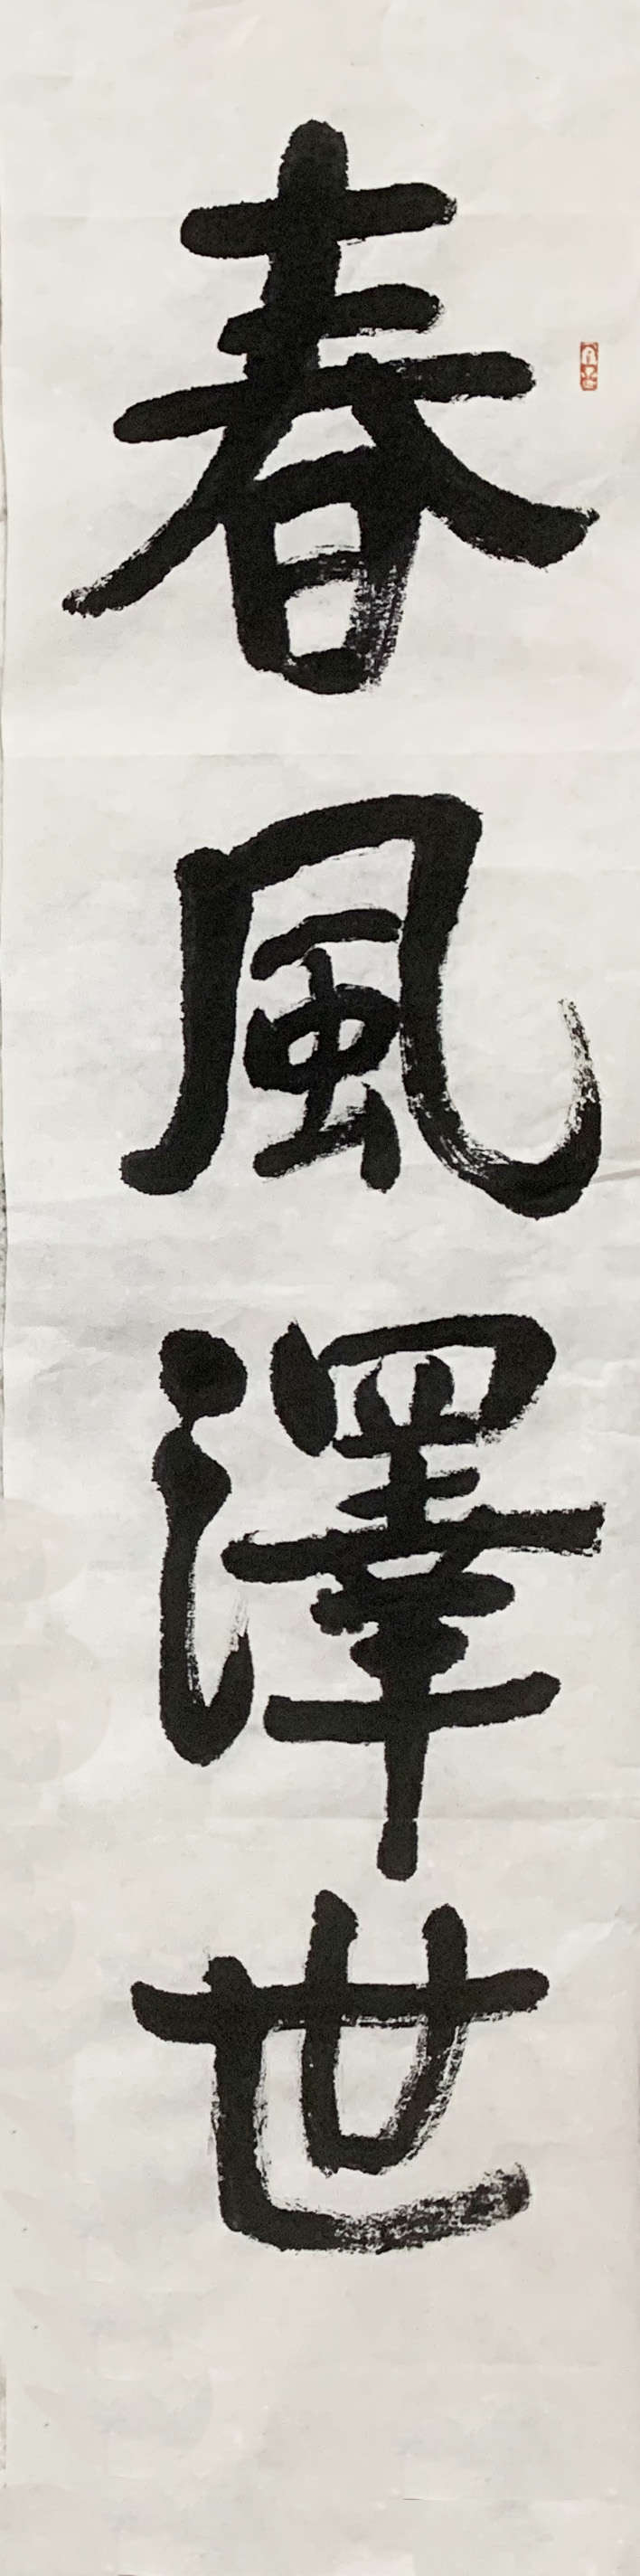 春風澤世